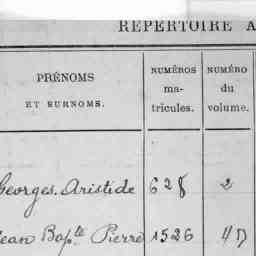 REPERTOIRE A
PRÉNOMS
ET SURNOMS.
NUMÉROS
ma-
tricules.
NUMÉRO
du
volume.
Georges. Aristide 628 2
Jean Bapte Pierre 1526